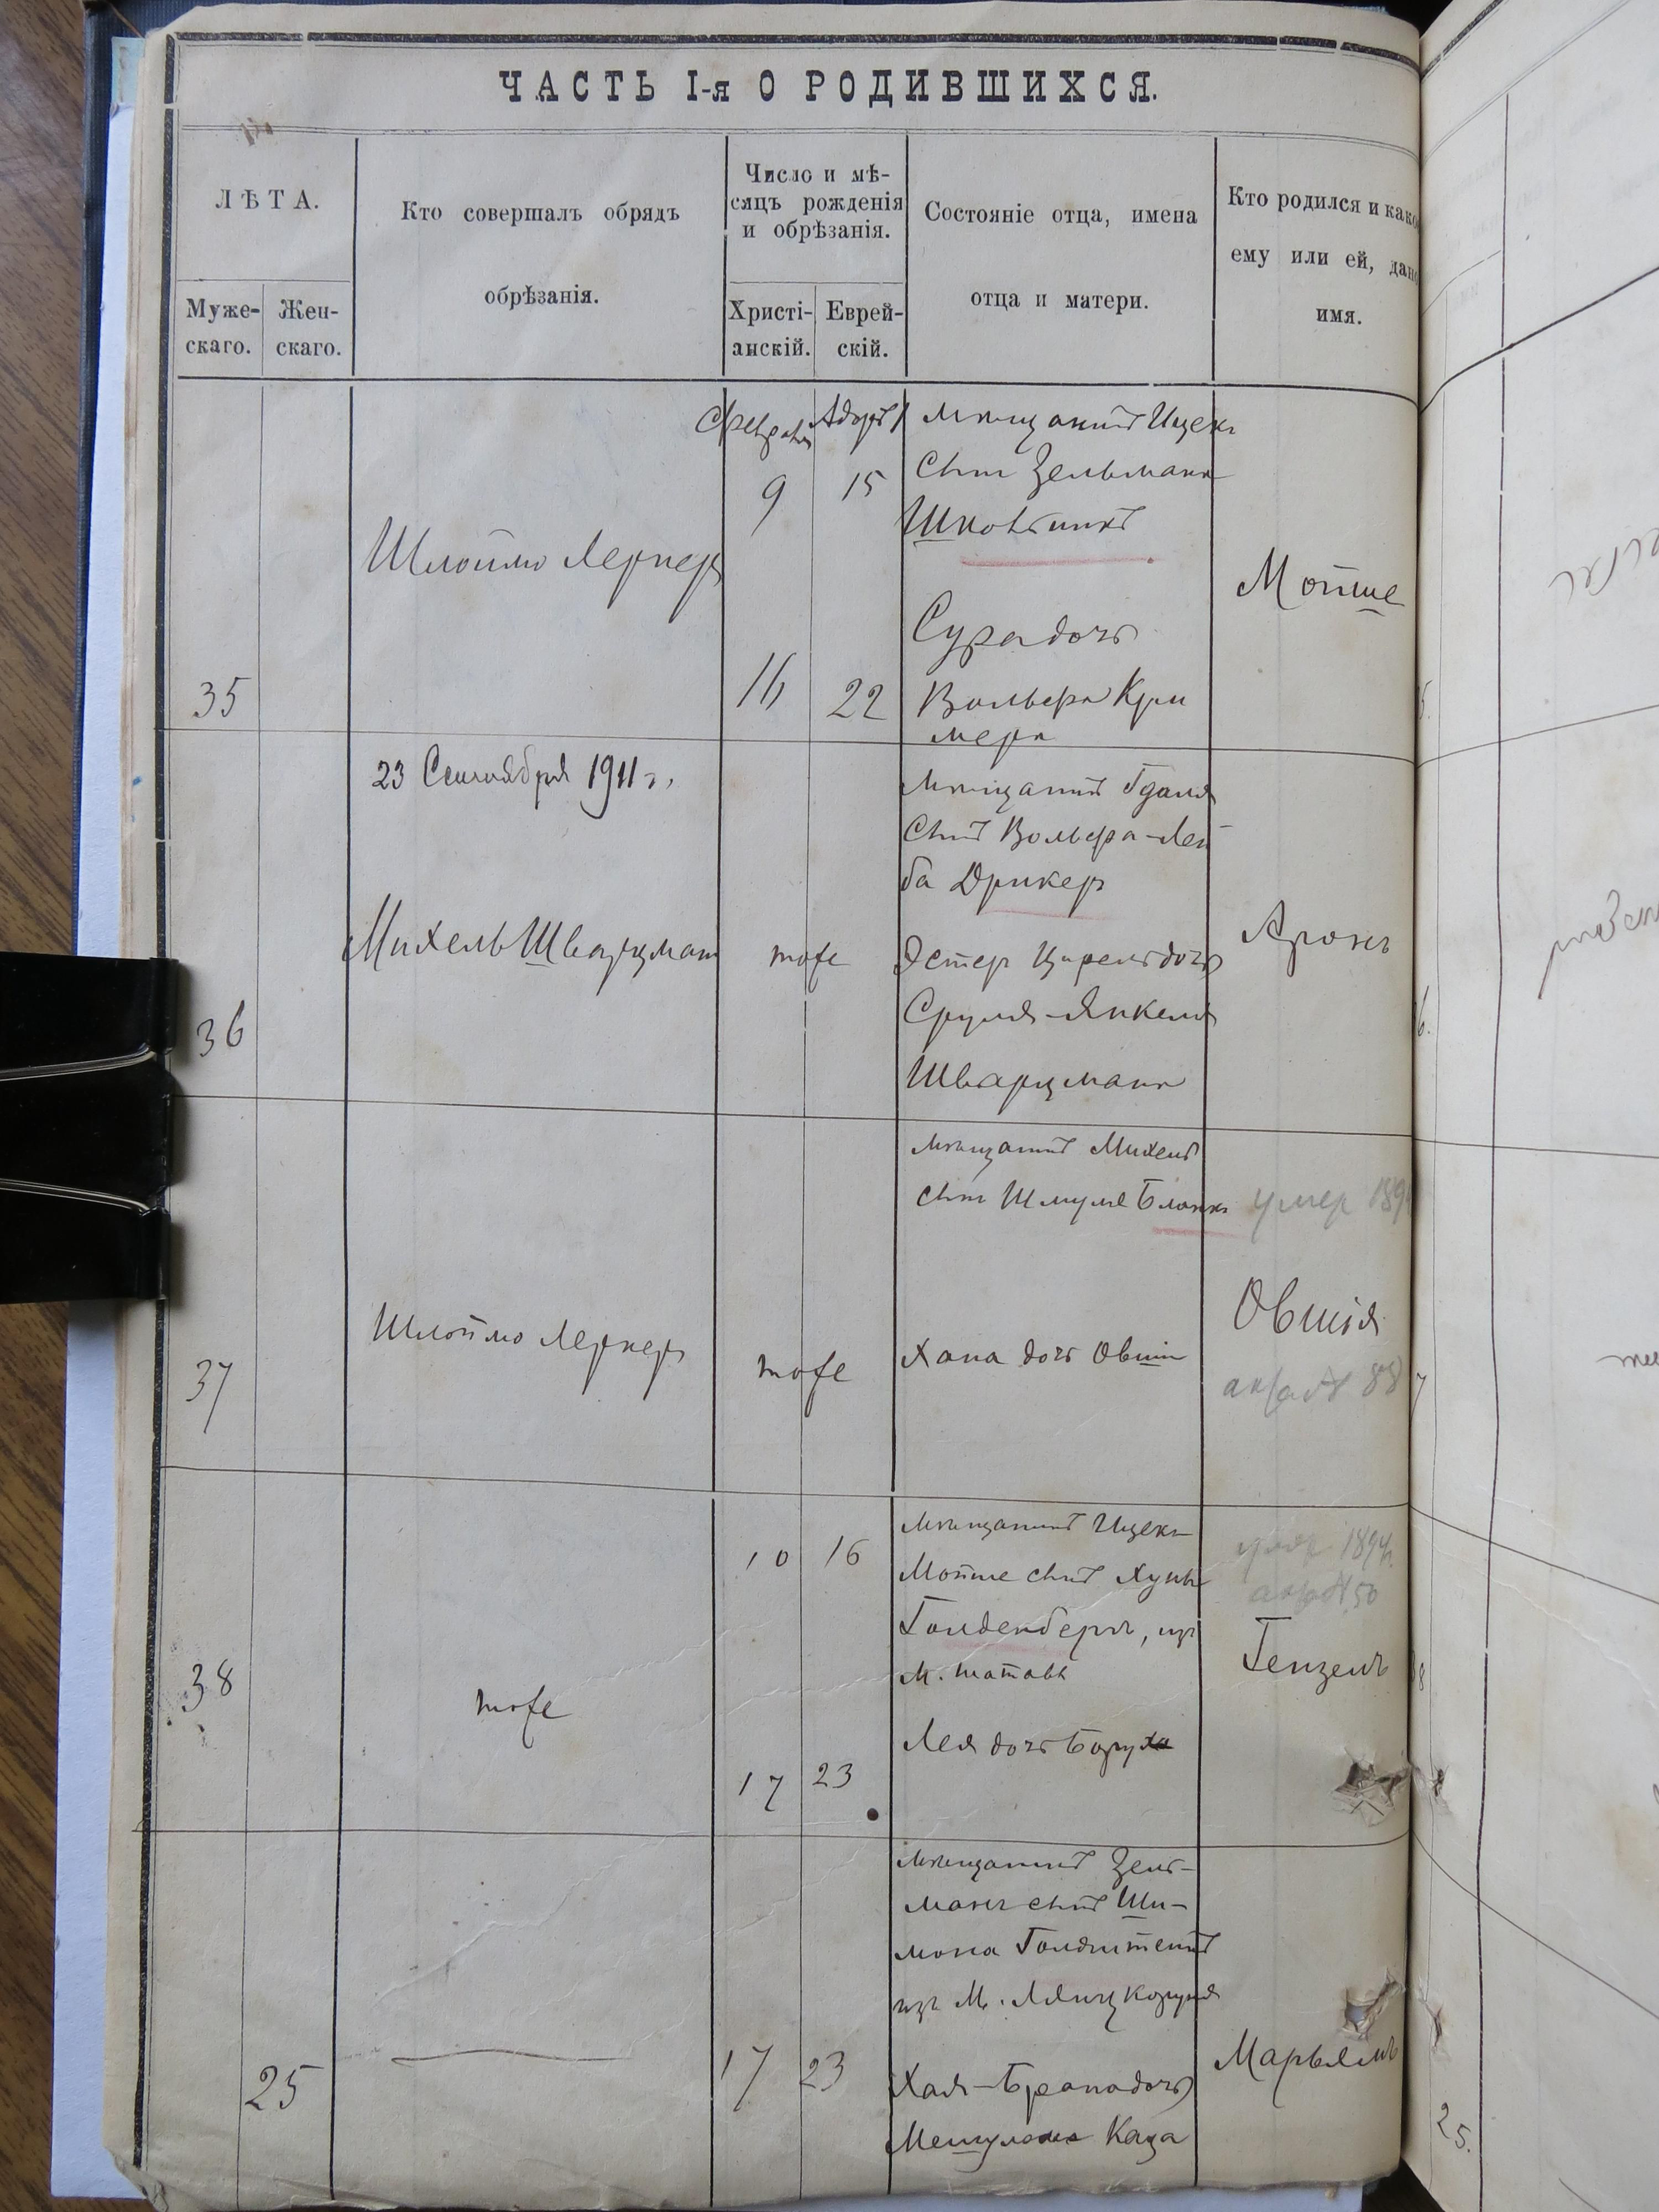 ЧАСТЬ I-я О РОДИВШИХСЯ.
ЛѢТА.
Муже-
скаго.
Жен-
скаго.
Кто совершалъ обрядъ
обрѣзанія.
Число и мѣ-
сяцъ рожденія
и обрѣзанія.
Христі-
анскій.
Еврей-
скій.
Состояніе отца, имена
отца и матери.
Кто родился и како
ему или ей, дано
имя.
35
Шлоймо Лернеръ
Февраля
9
16
Адаръ
15
22
Мѣщанинъ Ицекъ
Сынъ Зельмана
Сура дочь
Вольфа Кри
мера
Мотше
36
23 Сентября 1911 г.
Михель Шварцманъ
тоже
Мѣщанинъ Гдаля
Сынъ Вольфа-Лей
ба Дрикеръ
Эстер Цирель дочь
Сруля-Янкеля
Шварцмана
Аронъ
37
Шлоймо Лернеръ
тоже
Мѣщанинъ Михель
сынъ Шмуля Бланкъ
Хана дочь Овшія
умер 189
Овшія
акта № 88
38
тоже
10 16
17 23
Мѣщанинъ Ицекъ
Мотше сынъ Хуны
Голденбергъ, изъ
М. Шатавы
Лея дочь Боруха
умер 1894г.
акта № 50
Гензель
25
17 23
Мѣщанинъ Зель-
манъ сынъ Ши-
мона Голдштейнъ
изъ М. Лянцкоруня
Хая-Брана дочь
Мешулема Каца
Марьямъ
25.